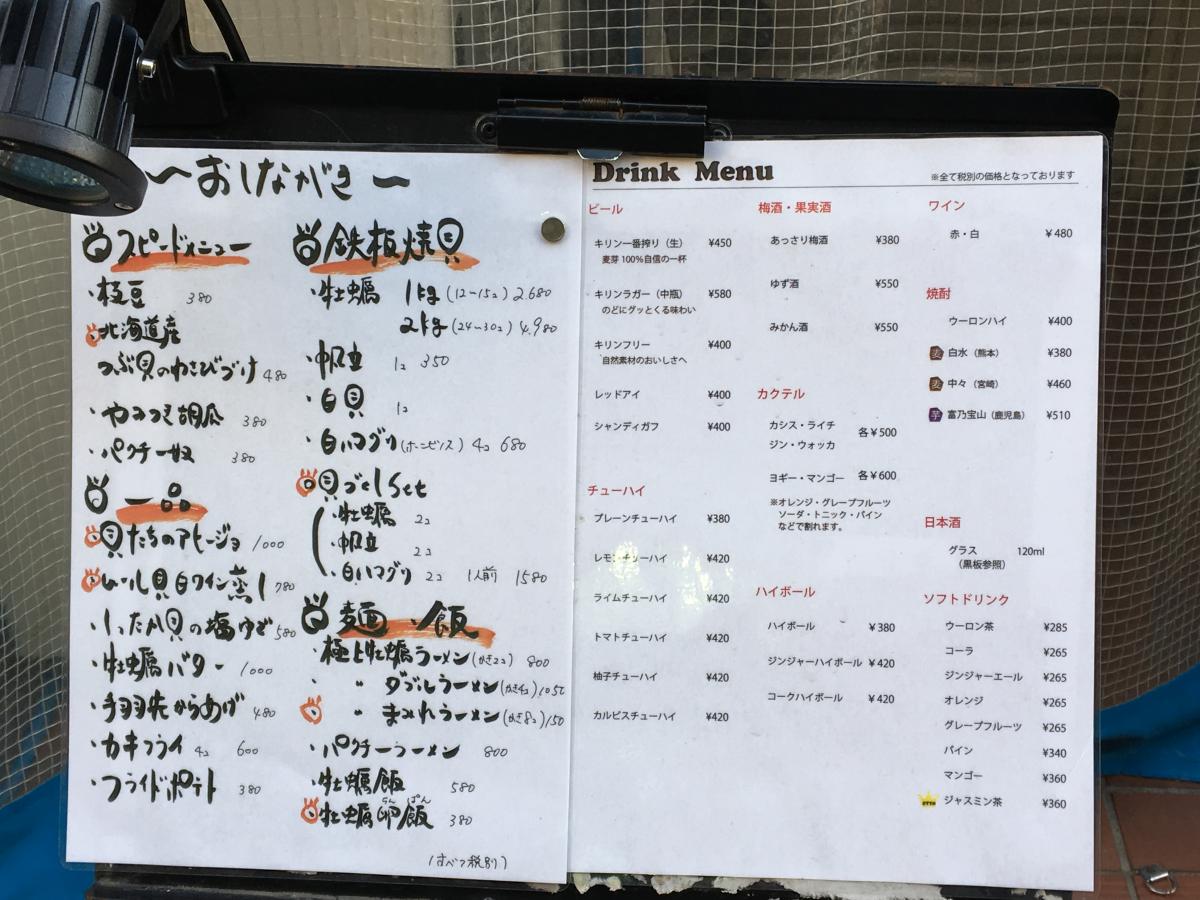 〜おしながき〜
スピードメニュー
・枝豆 380
北海道産
つぶ貝のわさびづけ 480
・やみつき胡瓜 380
・パクチー奴 380
一品
貝たちのアヒージョ 1000
ムール貝白ワイン蒸し 780
・しったか貝の塩ゆで 580
・牡蠣バター 1000
・手羽先からあげ 480
・カキフライ 4コ 600
・フライドポテト 380
鉄板焼貝
・牡蠣 1kg (12〜15コ) 2.680
2kg (24〜30コ) 4.980
・帆立 1コ 350
・白貝 1コ
・白ハマグリ (ホンビノス) 4コ 680
貝づくしSet
・牡蠣 2コ
・帆立 2コ
・白ハマグリ 2コ 1人前 1580
麺・飯
・極上牡蠣ラーメン (かき2コ) 800
・ 〃 ダブルラーメン (かき4コ) 1050
〃 まみれラーメン (かき8コ) 150
・パクチーラーメン 800
・牡蠣飯 580
牡蠣卵飯 380
らん ぱん
(すべて税別)
Drink Menu
※全て税別の価格となっております
ビール
キリン一番搾り（生） ¥450
麦芽100%自信の一杯
キリンラガー（中瓶） ¥580
のどにグッとくる味わい
キリンフリー ¥400
自然素材のおいしさへ
レッドアイ ¥400
シャンディガフ ¥400
チューハイ
プレーンチューハイ ¥380
レモンチューハイ ¥420
ライムチューハイ ¥420
トマトチューハイ ¥420
柚子チューハイ ¥420
カルピスチューハイ ¥420
梅酒・果実酒
あっさり梅酒 ¥380
ゆず酒 ¥550
みかん酒 ¥550
カクテル
カシス・ライチ
ジン・ウォッカ 各¥500
ヨギー・マンゴー 各¥600
※オレンジ・グレープフルーツ
ソーダ・トニック・パイン
などで割れます。
ハイボール
ハイボール ¥380
ジンジャーハイボール ¥420
コークハイボール ¥420
ワイン
赤・白 ¥480
焼酎
ウーロンハイ ¥400
麦 白水（熊本） ¥380
麦 中々（宮崎） ¥460
芋 富乃宝山（鹿児島） ¥510
日本酒
グラス 120ml
（黒板参照）
ソフトドリンク
ウーロン茶 ¥285
コーラ ¥265
ジンジャーエール ¥265
オレンジ ¥265
グレープフルーツ ¥265
パイン ¥340
マンゴー ¥360
ジャスミン茶 ¥360